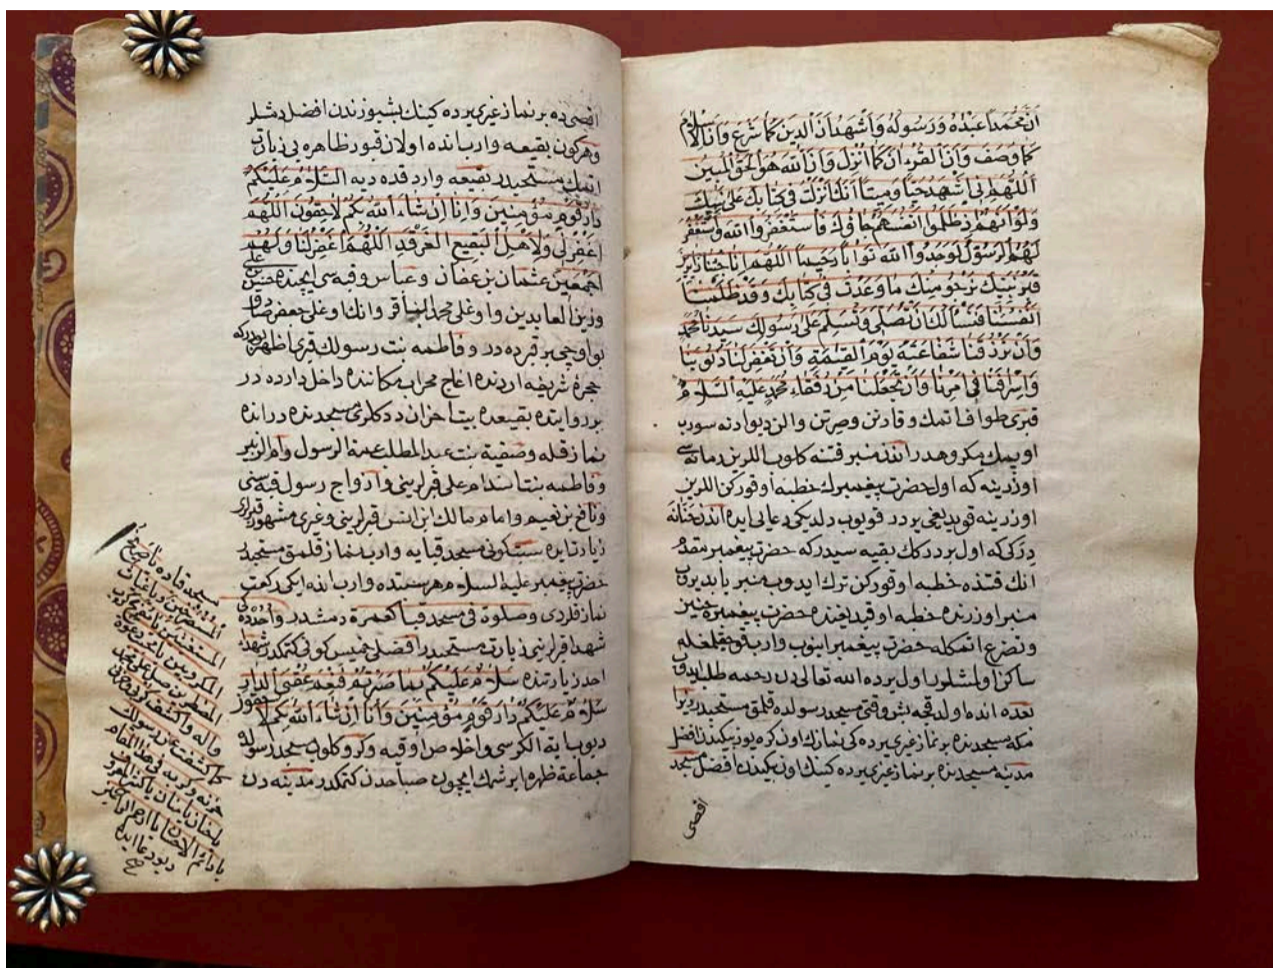 اَنَّ مُحَمَّداً عَبْدُهُ وَرَسُولُهُ وَاَشْهَدُ اَنَّ الدّينَ كَمَا شَرَعَ وَاَنَّ الاِسْلاَمَ
كَمَا وَصَفَ وَاَنَّ الْقُرْاٰنَ كَمَا اَنْزَلَ وَاَنَّ اللّٰهَ هُوَ الْحَقُّ الْمُبين
اَللّٰهُمَّ اِنّي اَشْهَدُ حَيّاً وَمَيِّتاً اَنَّكَ اَنْزَلْتَ في كِتَابِكَ عَلٰى نَبِيِّكَ
وَلَوْ اَنَّهُمْ اِذْ ظَلَمُوا اَنْفُسَهُمْ جَاؤُكَ فَاسْتَغْفَرُوا اللّٰهَ وَاسْتَغْفَرَ
لَهُمُ الرَّسُولُ لَوَجَدُوا اللّٰهَ تَوَّاباً رَحيماً اَللّٰهُمَّ اِنَّا جِئْنَا زَائِرينَ
قَبْرَ نَبِيِّكَ نَرْجُو مِنْكَ مَا وَعَدْتَ في كِتَابِكَ وَقَدْ ظَلَمْنَا
اَنْفُسَنَا فَنَسْأَلُكَ اَنْ تُصَلِّيَ وَتُسَلِّمَ عَلٰى رَسُولِكَ سَيِّدِنَا مُحَمَّدٍ
وَاَنْ تَرْزُقَنَا شَفَاعَتَهُ يَوْمَ الْقِيٰمَةِ وَاَنْ تَغْفِرَ لَنَا ذُنُوبَنَا
وَاِسْرَافَنَا في اَمْرِنَا وَاَنْ تَجْعَلَنَا مِنْ رُفَقَاءِ مُحَمَّدٍ عَلَيْهِ السَّلاَمُ
قبرى طواف اتمك وقارنن وصرتن والن ديوارنه سورب
اوپمك مكروهدر اندن منبر قتنه كلوب اللرين رمانه سى
اوزرينه كه اول حضرت پيغمبرك خطبه اوقوركن اللرين
اوزرينه قويديغى يردر قويوب دلديكى دعايى ايده اندن حنانه
ديركى كه اول بر ديرك بقيه سيدركه حضرت پيغمبر مقدما
انك قتنده خطبه اوقوركن ترك ايدوب منبر يابديروب
منبر اوزرنده خطبه اوقيديغنده حضرت پيغمبره حنين
وتضرع اتمكله حضرت پيغمبر اينوب واروب قوجقلمغله
ساكن اولمشلور اول يرده الله تعالى دن رحمه طلب ايدوب
بعده انده اولدقجه بش وقتى مسجد رسولده قلمق مستحبدر زيرا
مكه مسجدنده بر نماز غيرى يرده كى نمازك اون كره يوز بيكندن افضل
مدينه مسجدنده بر نماز غيرى يرده كينك اون بيكندن افضل مسجد
اقصى
اقصى ده بر نماز غيرى يرده كينك بشيوزندن افضلدر شلر
وهر كون بقيعه واروب انده اولان قبور ظاهره يى زيارت
اتمك مستحبدر بقيعه وارد قده ديه اَلسَّلاَمُ عَلَيْكُمْ
دَارَ قَوْمٍ مُؤْمِنينَ وَاِنَّا اِنْ شَاءَ اللّٰهُ بِكُمْ لاَحِقُونَ اَللّٰهُمَّ
اغْفِرْ لي وَلاَهْلِ الْبَقيعِ الْغَرْقَدِ اَللّٰهُمَّ اغْفِرْ لَنَا وَلَهُمْ
اَجْمَعينَ عثمان بن عفان وعباس وقبه سى ايچنده حسن بن على
وزين العابدين واوغلى محمد الباقر وانك اوغلى جعفر صادق
بو اوچى بر قبرده در وفاطمه بنت رسولك قبرى اظهر بودركه
حجرۀ شريفه اردنده اغاج محراب مكاننده داخل داردە در
بر روايتده بقيعده بيت احزان ددكلرى مسجدنده در انده
نماز قله وصفية بنت عبد المطلب عمة الرسول وام الزبير
وفاطمه بنت اسد ام على قبرلرينى وازواج رسول قبه سنى
ونافع بن نعيم وامام مالك ابن انس قبرلرينى وغيرى مشهور قبرلرى
زيارت ايده سبت كونى مسجد قبايه واروب نماز قلمق مستحبدر
حضرت پيغمبر عليه السلام هر سبتده واروب انده ايكى ركعت
نماز قلردى وصلوة فى مسجد قبا كعمرة دمشدر واحدده كى
شهدا قبرلرينى زيارت مستحبدر افضلى خميس كونى كتمكدر شهداء
احد زيارتنده سَلاَمٌ عَلَيْكُمْ بِمَا صَبَرْتُمْ فَنِعْمَ عُقْبَى الدَّارِ
سَلاَمٌ عَلَيْكُمْ دَارَ قَوْمٍ مُؤْمِنينَ وَاِنَّا اِنْ شَاءَ اللّٰهُ بِكُمْ لاَحِقُونَ
ديوب اية الكرسى واخلاص اوقيه وكرو كلوب مسجد رسولده
جماعة ظهره ايرشمك ايچون صباحدن كتمكدر مدينه دن
مسجد قباده يا صريخ
المستصرخين ويا غياث
المستغيثين يا مفرج كرب
المكروبين يا مجيب دعوة
المضطرين صل على محمد
واله واكشف كربى وحزنى
كما كشفت عن رسولك
حزنه وكربه فى هذا المقام
يا حنان يا منان يا كثير المعروف
يا دائم الاحسان يا ارحم الراحمين
ديو دعا ايده
صح